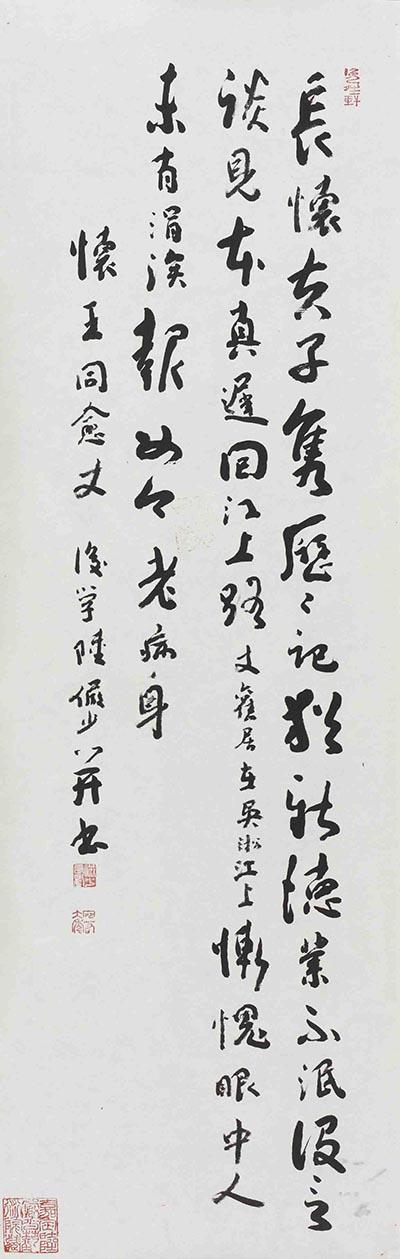 長懷夫子雋歷〻記猶新德業不泯沒言
談見本真遲回江上路丈舊居在吳淞江上慚愧眼中人
未有涓涘報如今老病身
懷王同愈丈 後學陸儼少并書